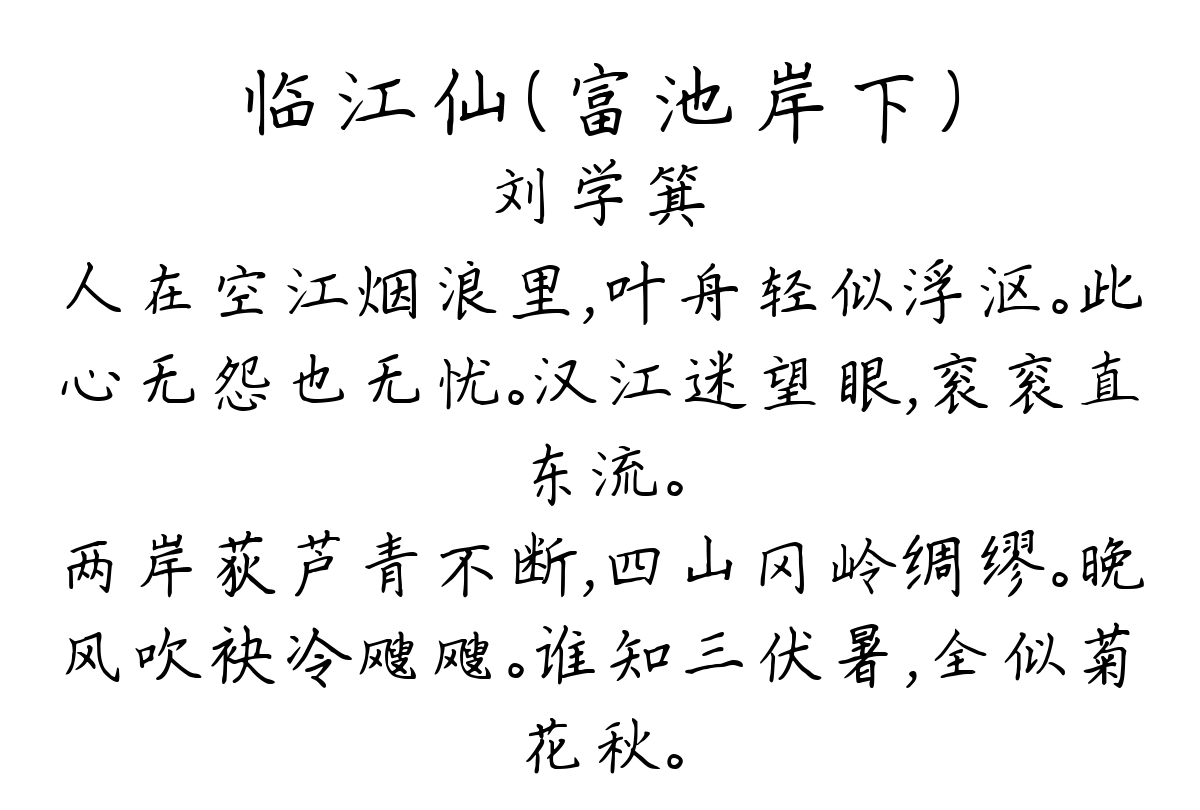 临江仙(富池岸下)
刘学箕
人在空江烟浪里,叶舟轻似浮沤。此
心无怨也无忧。汉江迷望眼,衮衮直
东流。
两岸荻芦青不断,四山冈岭绸缪。晚
风吹袂冷飕飕。谁知三伏暑,全似菊
花秋。